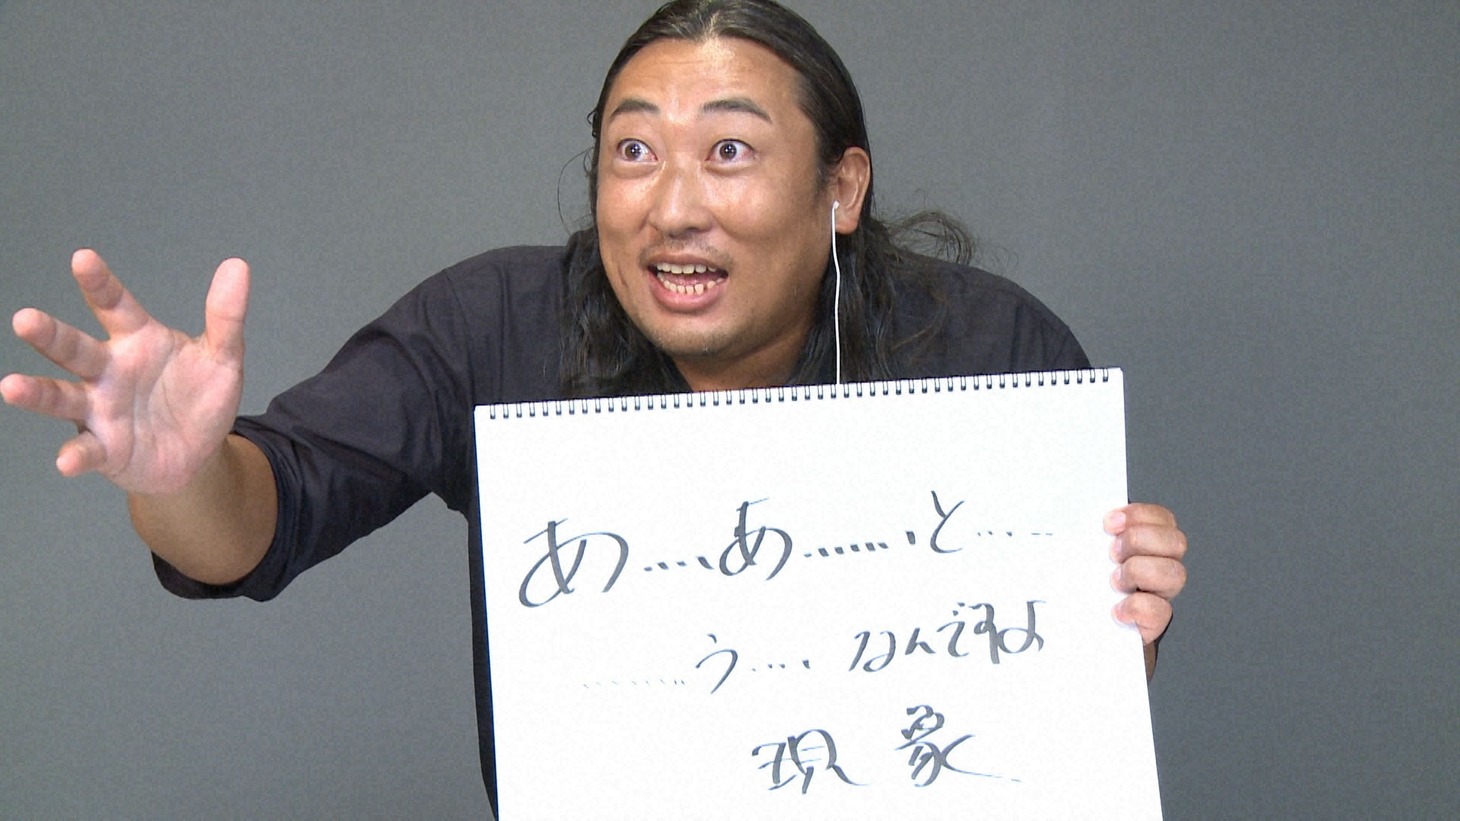 あ....、あ........、と......
........う....、なんですよ
現象